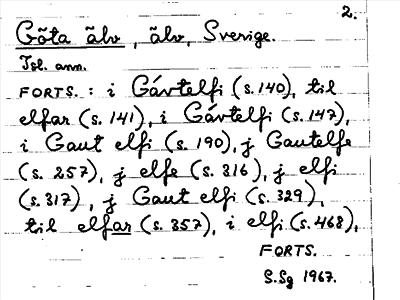 2.
Göta älv, älv, Sverige.
Isl. ann.
FORTS.: i Gávtelfi (s. 140), til
elfar (s. 141), i Gávtelfi (s. 147),
i Gaut elfi (s. 190), j Gautelfe
(s. 257), j elfe (s. 316), j elfi
(s. 317), j Gaut elfi (s. 329),
til elfar (s. 357), i elfi (s. 468),
FORTS.
S.Sg 1967.